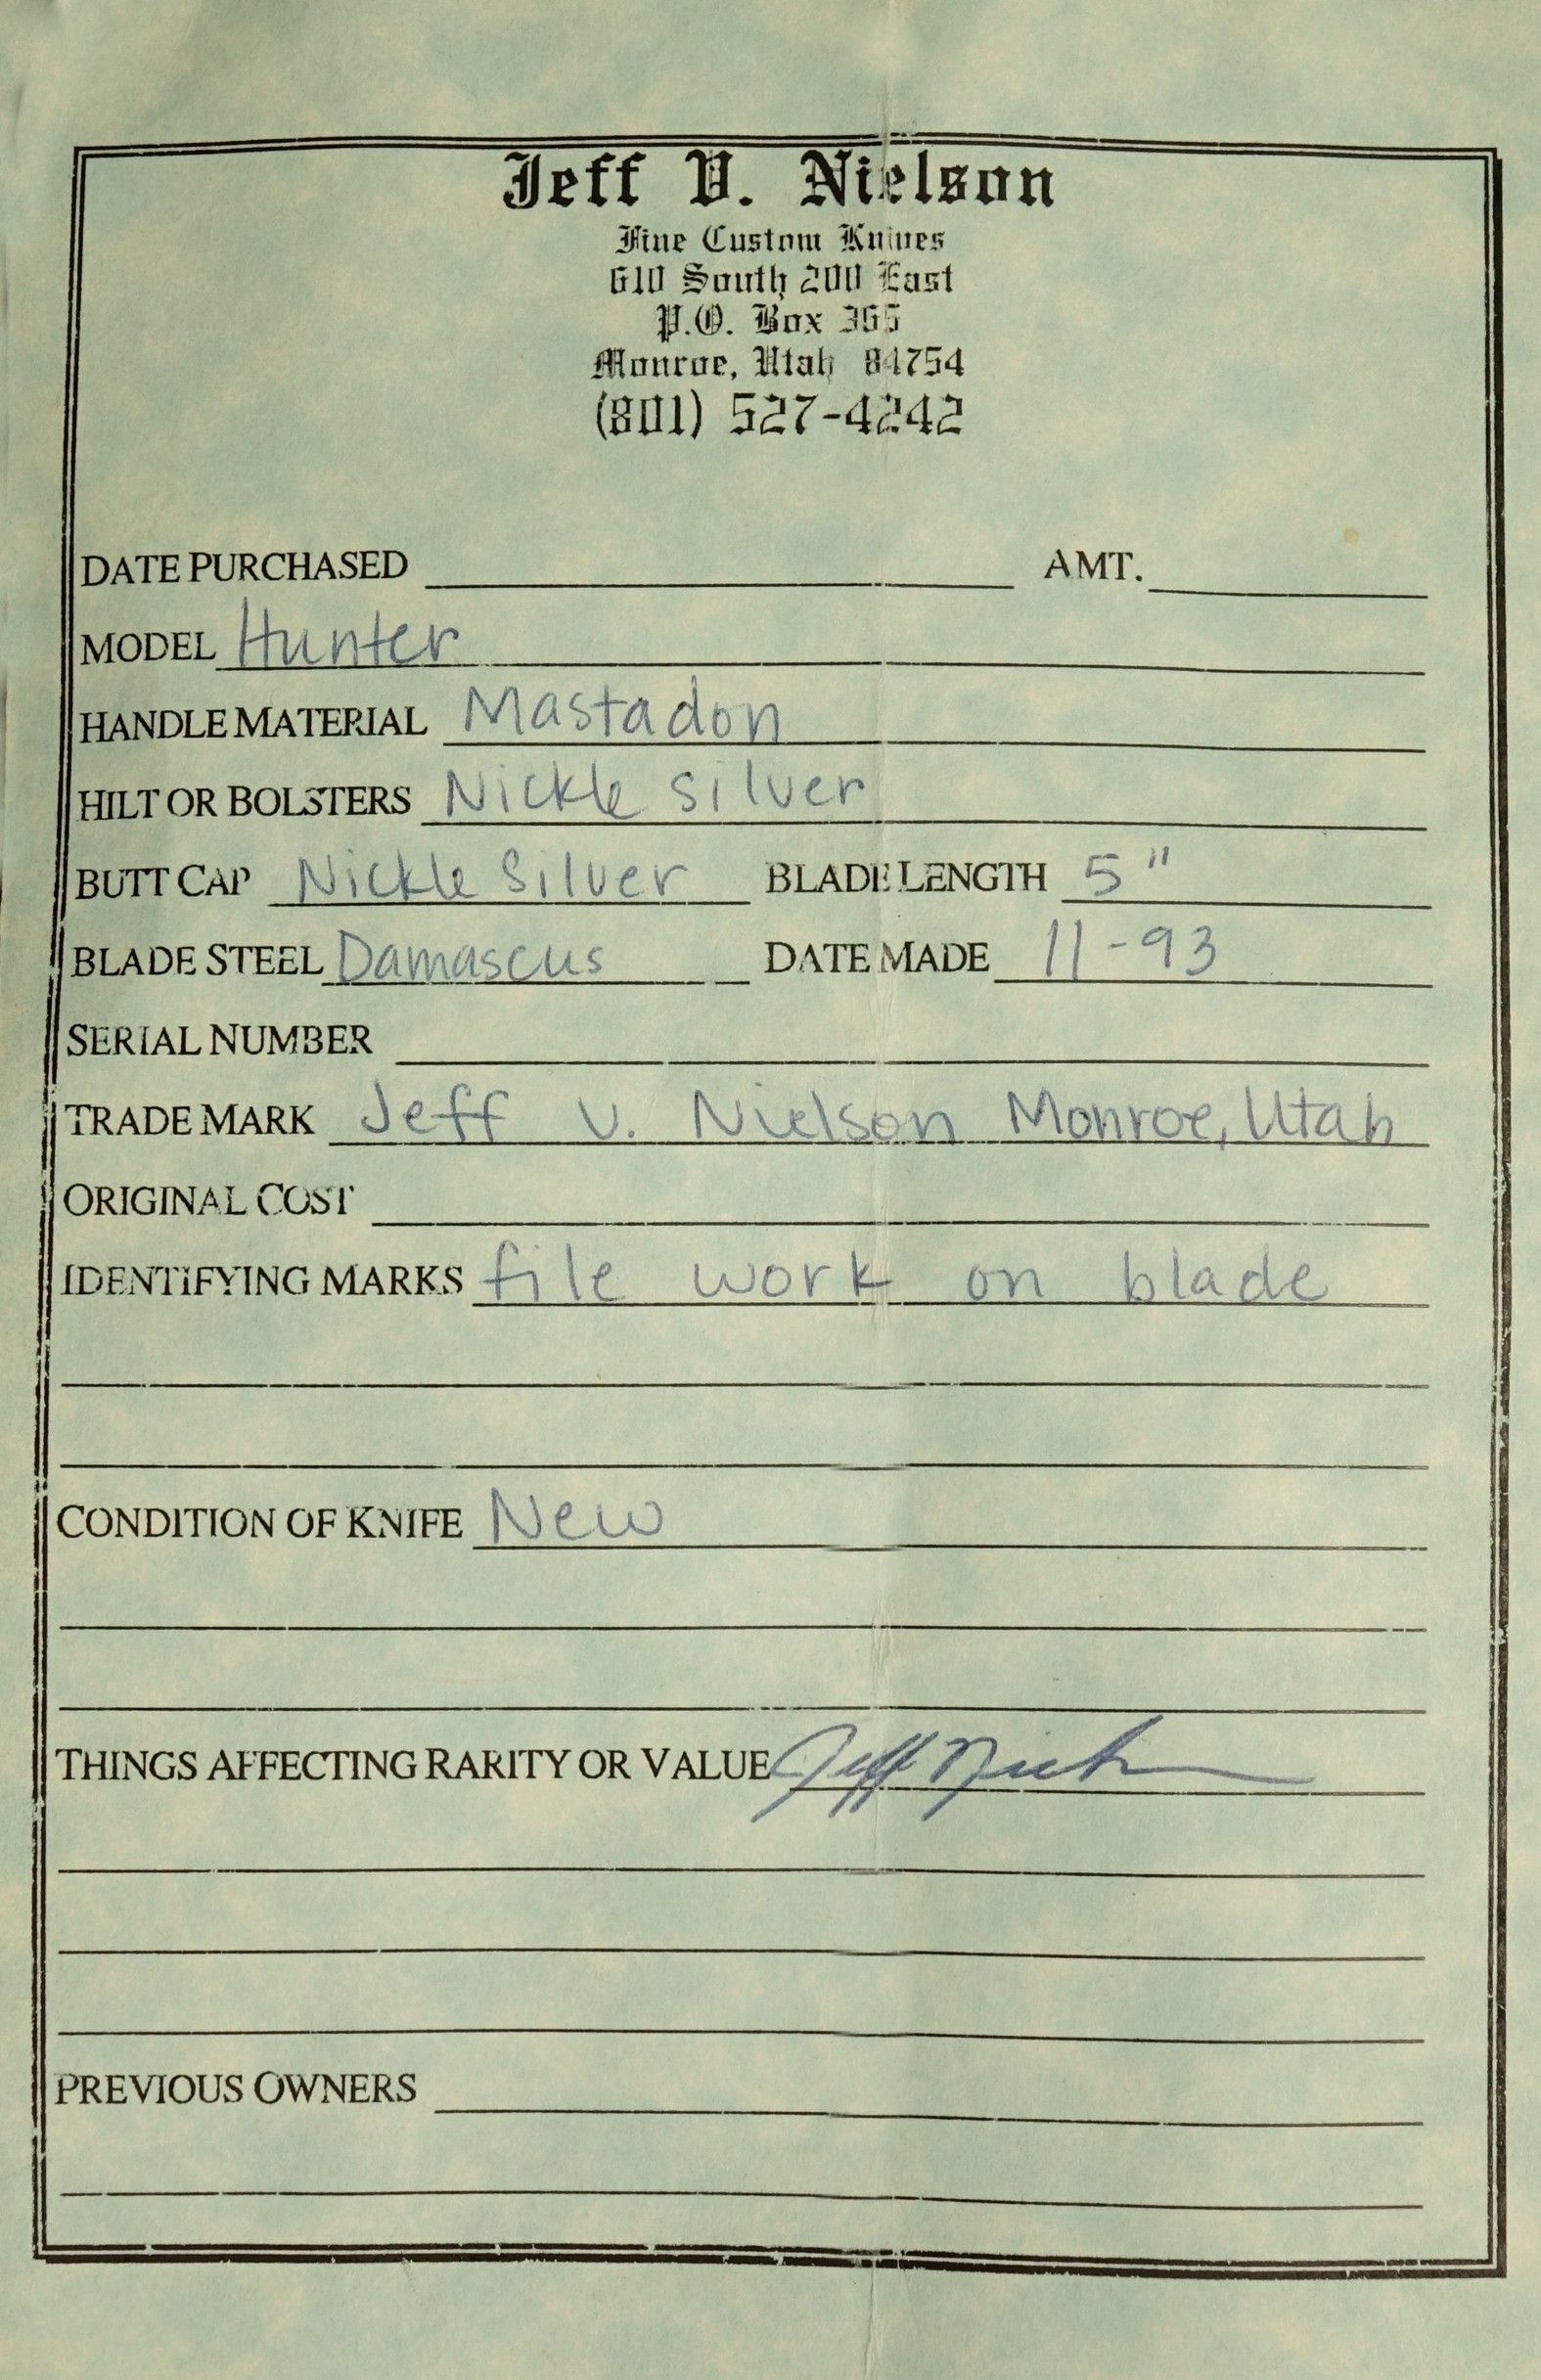 Jeff V. Nielson
Fine Custom Knives
610 South 200 East
P.O. Box 365
Monroe, Utah 84754
(801) 527-4242
DATE PURCHASED AMT.
MODEL Hunter
HANDLE MATERIAL Mastadon
HILT OR BOLSTERS Nickle silver
BUTT CAP Nickle Silver BLADE LENGTH 5"
BLADE STEEL Damascus DATE MADE 11-93
SERIAL NUMBER
TRADE MARK Jeff V. Nielson Monroe, Utah
ORIGINAL COST
IDENTIFYING MARKS file work on blade
CONDITION OF KNIFE New
THINGS AFFECTING RARITY OR VALUE Jeff Nielson
PREVIOUS OWNERS